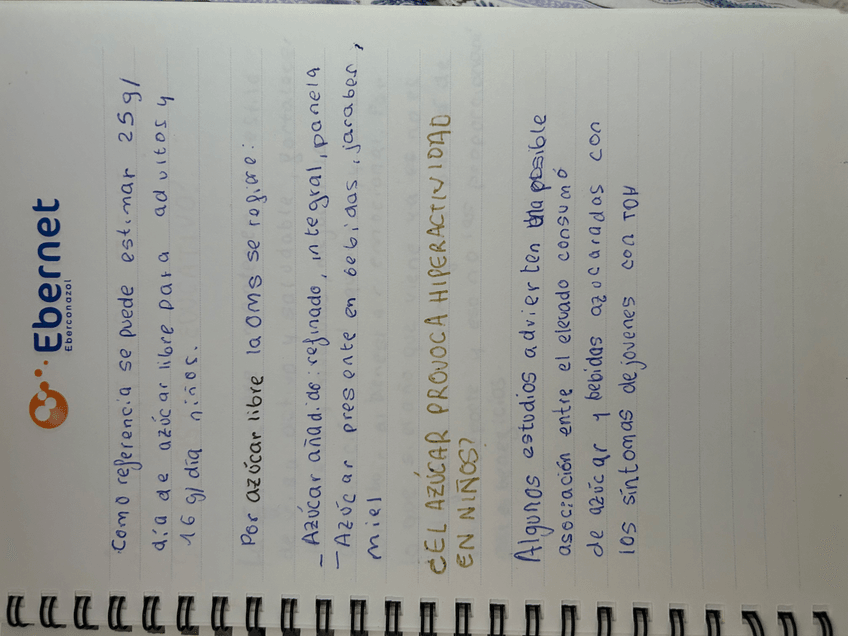 Ebernet
Eberconazol
Como referencia se puede estimar 25g/
día de azúcar libre para adultos y
16 g/día niños.
Por azúcar libre la OMS se refiere:
- Azúcar añadido: refinado, integral, panela
- Azúcar presente en bebidas, jarabes,
miel
¿EL AZÚCAR PROVOCA HIPERACTIVIDAD
EN NIÑOS?
Algunos estudios advierten una posible
asociación entre el elevado consumó
de azúcar y bebidas azucaradas con
los síntomas de jovenes con TDH